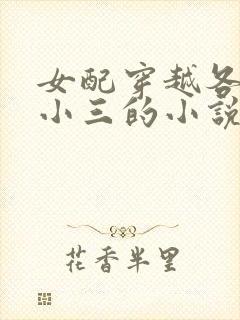 女配穿越各
小三的小說
花香半里